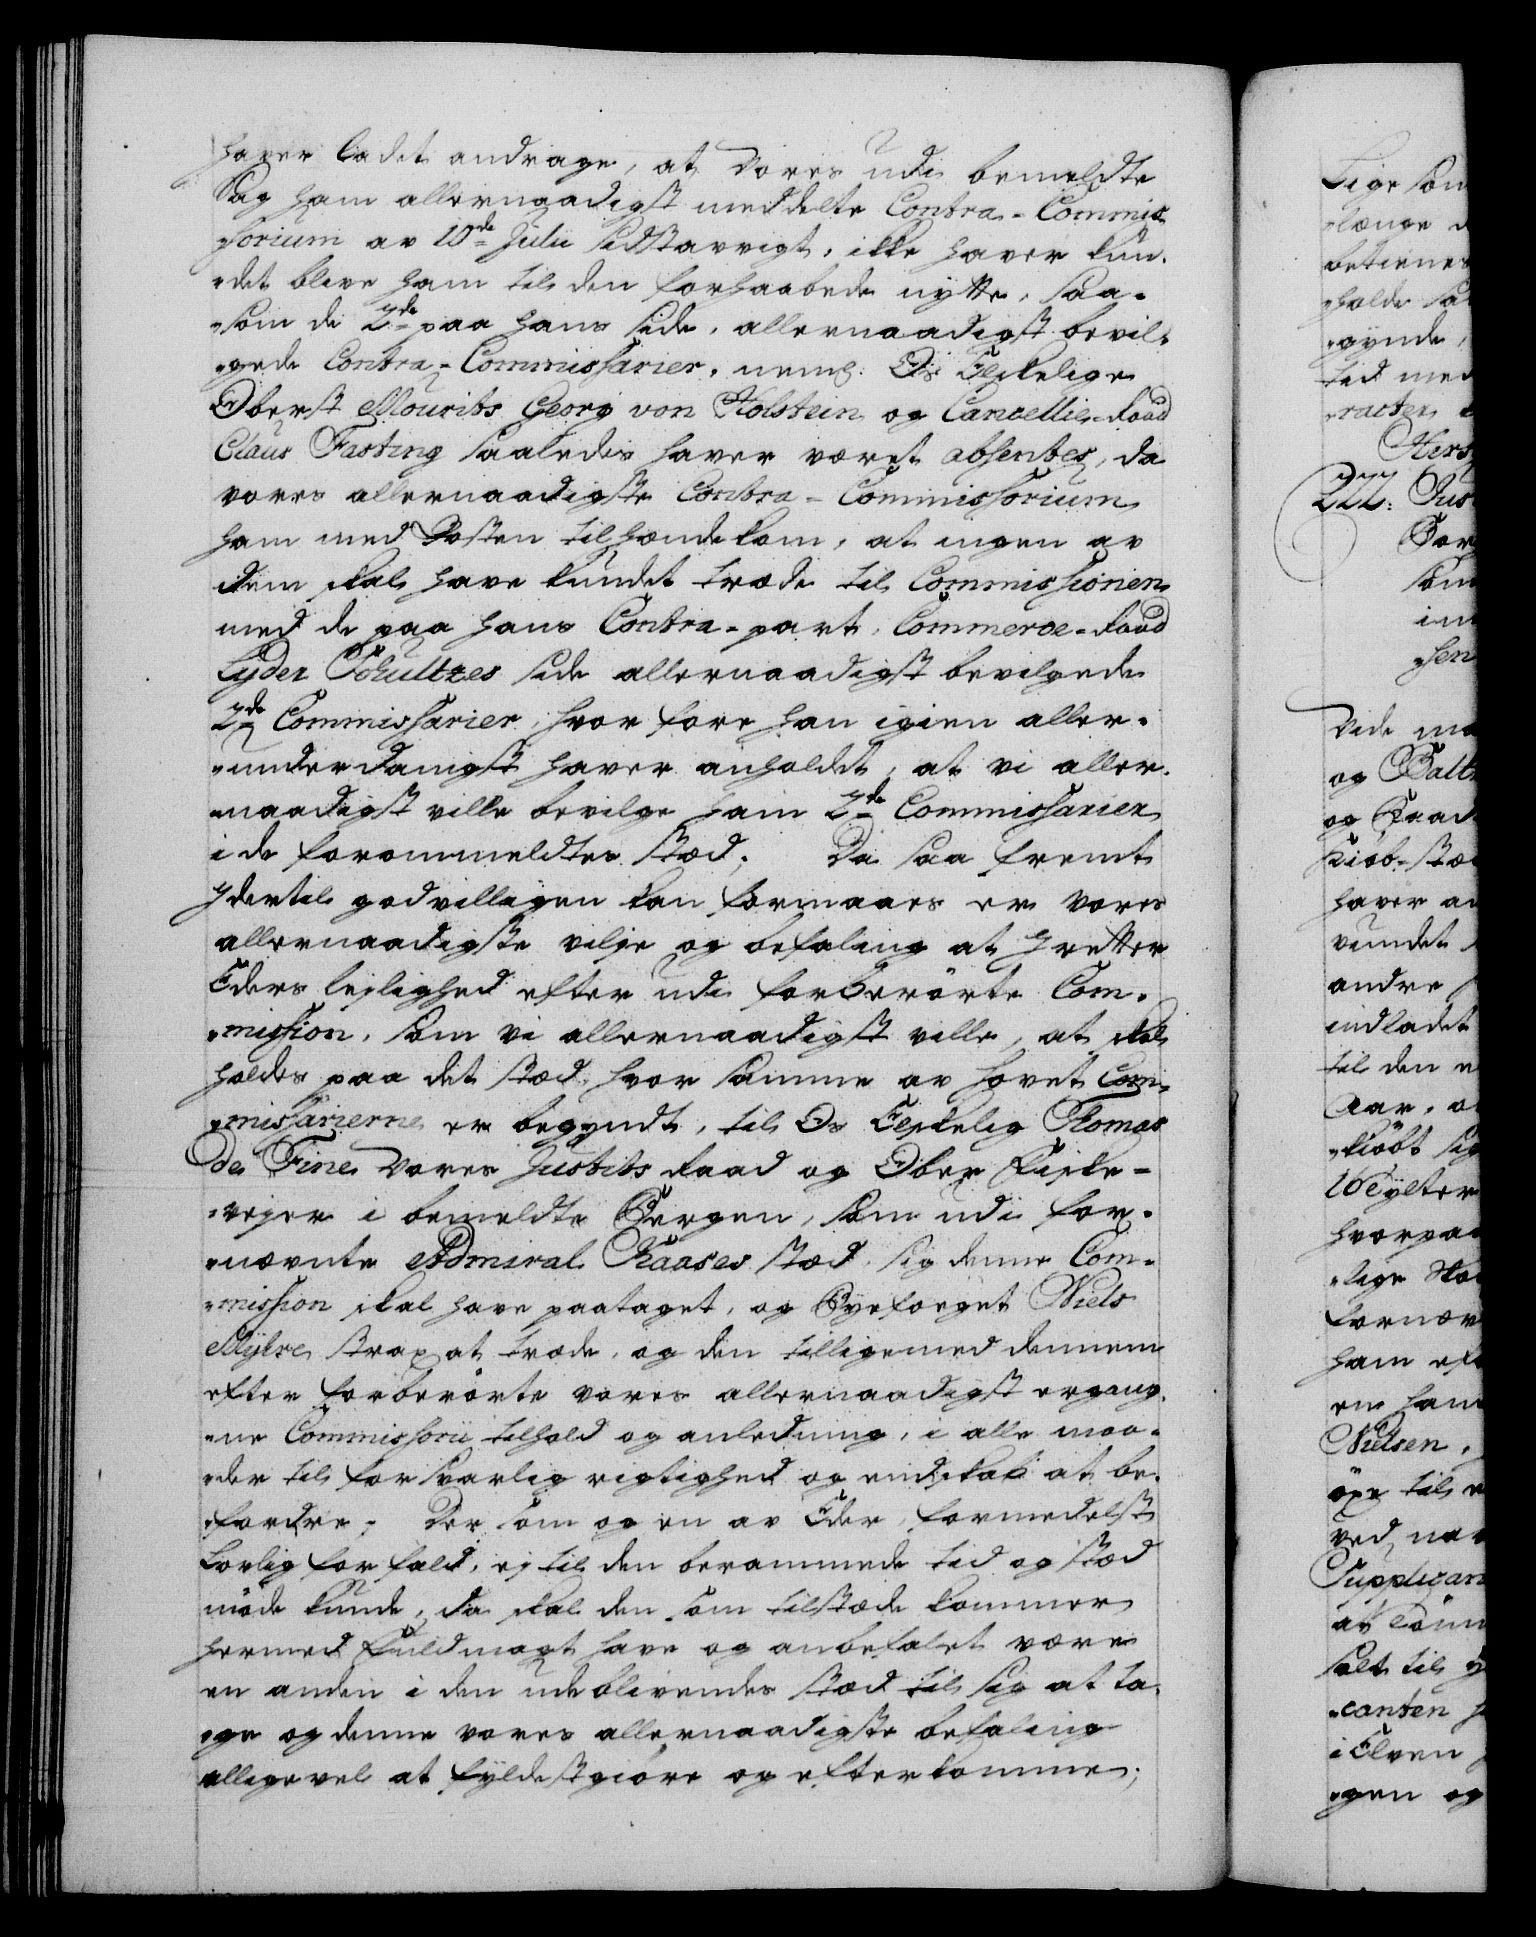 haver ladet andrage, at Vores udi bemeldte
Sag ham allernaadigst meddelte Contra-Commis
sorium av 10de Julii sidstavvigt, ikke haver kun-
det blive ham til den forhaabede nytte, saa-
som de 2de paa hans side, allernaadigst bevil-
gede Contra-Commissarier, neml: Os Elskelige
Oberst Mourits Georg von Holstein og Cancellie-Raad
Claus Fasting saaledes haver været absentes, da
vores allernaadigste Contra-Commissorium
ham med Posten tilhændekom, at ingen av
dem skal have kundet træde til Commissionen
med de paa hans Contra-part, Commerce-Raad
Lyder Schultzes side allernaadigst bevilgede
2de Commissarier, hvorfore han igien aller-
underdanigst haver anholdet, at vi aller-
naadigst ville bevilge ham 2de Commissarier
i de forommeldtes stæd; Da saa fremt
I dertil godvilligen kan formaaes er Vores
allernaadigste vilje og befaling at I retter
Eders lejlighed efter udi forberörte Com-
mission, som vi allernaadigst ville, at skal
holdes paa det stæd, hvor samme av hovet Com-
missarierne er begyndt, til Os Elskelig Thomas
de Fine Vores Justits Raad og Ober Fiske-
vejer i bemeldte Bergen, som udi for-
nævnte Admiral Kaases stæd, sig denne Com-
mission skal have paataget, og Byefoget Niels
Mylre, strax at træde, og den tilligemed dennem
efter forberörte vores allernaadigst ergang-
ne Commissorii tilhold og anledning, i alle maa-
der til forsvarlig rigtighed og endskab at be-
fordre; Der som og en av Eder, formedelst
lovlig forfald, ej til den berammede tid og stæd
möde kunde, da skal den som tilstæde kommer
hermed fuldmagt have og anbefalet være
en anden i den udeblivendes stæd til sig at ta-
ge og denne vores allernaadigste befaling
alligevel at fyldestgiöre og efterkomme;
Lige som
længe
betienes
holde
gynde,
tid med
racter
222: Jus
vide
og
og Raad
Kiöb-stæ
haver
vundet
andre
indladet
til den
Aar,
kiöbt sig
hvorpaa
lige
fornæv
ham
en ham
Nielsen,
til
ved
Supplican
at
til
canten
i Elven
gen og